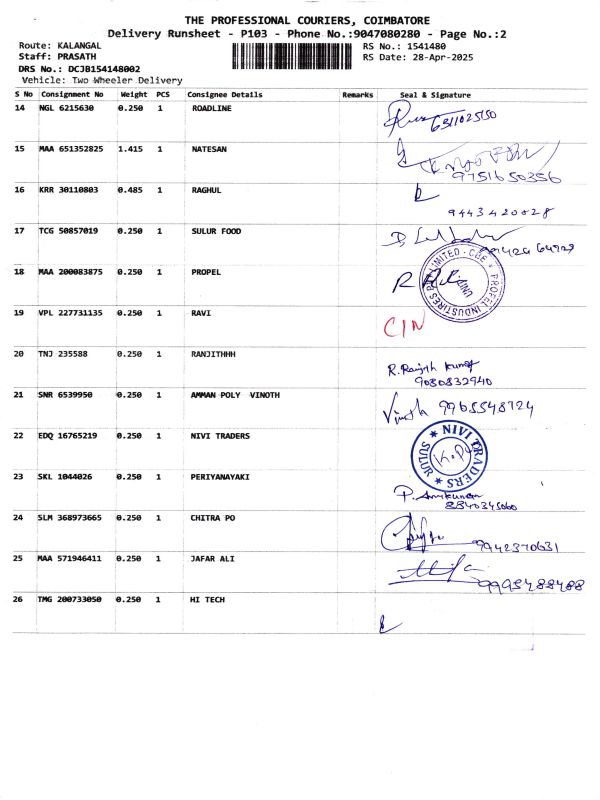 THE PROFESSIONAL COURIERS, COIMBATORE
Delivery Runsheet - P103 - Phone No.:9047080280 - Page No.:2
Route: KALANGAL RS No.: 1541480
Staff: PRASATH RS Date: 28-Apr-2025
DRS No.: DCJB154148002
Vehicle: Two Wheeler Delivery
S No Consignment No Weight PCS Consignee Details Remarks Seal & Signature
14 NGL 6215630 0.250 1 ROADLINE
15 MAA 651352825 1.415 1 NATESAN
9751650356
16 KRR 30110803 0.485 1 RAGHUL
9443420828
17 TCG 50857019 0.250 1 SULUR FOOD
18 MAA 200083875 0.250 1 PROPEL
19 VPL 227731135 0.250 1 RAVI CIN
20 TNJ 235588 0.250 1 RANJITHHH
R. Ranjith Kumar
9080832940
21 SNR 6539950 0.250 1 AMMAN POLY VINOTH Vinoth 9965548724
22 EDQ 16765219 0.250 1 NIVI TRADERS NIVI TRADERS SULUR
23 SKL 1044026 0.250 1 PERIYANAYAKI
8840345060
24 SLM 368973665 0.250 1 CHITRA PO 9942370631
25 MAA 571946411 0.250 1 JAFAR ALI 9995488488
26 TMG 200733050 0.250 1 HI TECH